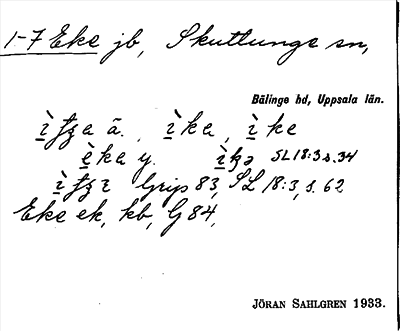 1-7 Eke jb, Skuttunge sn,
Bälinge hd, Uppsala län.
ä. , ìka, ìke
èka y. SL 18:3 s. 34
Grip 83, SL 18:3, s. 62
Eke ek, kb, G 84,
JÖRAN SAHLGREN 1933.